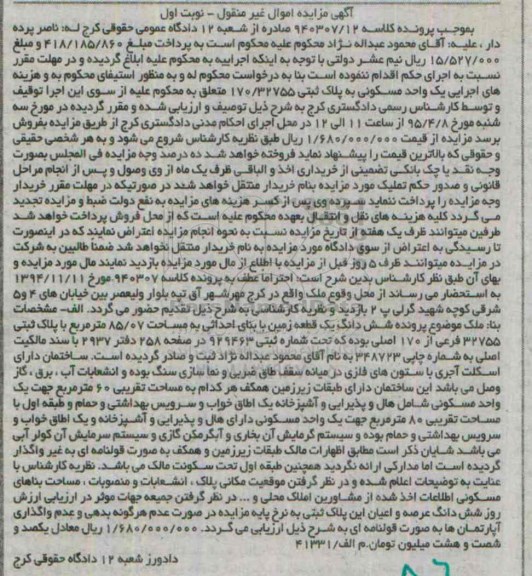 آگهی مزایده اموال غیر منقول - نوبت اول
بموجب پرونده کلاسه ۹۴۰۳۰۷/۱۲ صادره از شعبه ۱۲ دادگاه عمومی حقوقی کرج له: ناصر پرده
دار، علیه: آقای محمود عبداله نژاد محکوم علیه محکوم است به پرداخت مبلغ ۴۱۸/۱۸۵/۸۶۰ و مبلغ
۱۵/۵۲۷/۰۰۰ ریال نیم عشر دولتی با توجه به اینکه اجراییه به محکوم علیه ابلاغ گردیده و در مهلت مقرر
نسبت به اجرای حکم اقدام ننموده است بنا به درخواست محکوم له و به منظور استیفای محکوم به و هزینه
های اجرایی یک واحد مسکونی به پلاک ثبتی ۱۷۰/۳۲۷۵۵ متعلق به محکوم علیه از سوی این اجرا توقیف
و توسط کارشناس رسمی دادگستری کرج به شرح ذیل توصیف و ارزیابی شده و مقرر گردیده در مورخ سه
شنبه مورخ ۹۵/۴/۸ از ساعت ۱۱ الی ۱۲ در محل اجرای احکام مدنی دادگستری کرج از طریق مزایده بفروش
برسد مزایده از قیمت ۱/۶۸۰/۰۰۰/۰۰۰ ریال طبق نظریه کارشناس شروع می شود و به هر شخصی حقیقی
و حقوقی که بالاترین قیمت را پیشنهاد نماید فروخته خواهد شد ده درصد وجه مزایده فی المجلس بصورت
وجه نقد یا چک بانکی تضمینی از خریداری اخذ و الباقی ظرف یک ماه از وی وصول و پس از انجام مراحل
قانونی و صدور حکم تملیک مورد مزایده بنام خریدار منتقل خواهد شد در صورتیکه در مهلت مقرر خریدار
وجه مزایده را پرداخت ننماید سپرده وی پس از کسر هزینه های مزایده به نفع دولت ضبط و مزایده تجدید
می گردد کلیه هزینه های نقل و انتقال بعهده محکوم علیه است که از محل فروش پرداخت خواهد شد
طرفین میتوانند ظرف یک هفته از تاریخ مزایده نسبت به نحوه انجام مزایده اعتراض نمایند که در اینصورت
تا رسیدگی به اعتراض از سوی دادگاه مورد مزایده به نام خریدار منتقل نخواهد شد ضمنا طالبین به شرکت
در مزایده میتوانند ظرف ۵ روز قبل از مزایده با اطلاع از مال مورد مزایده بازدید نمایند مال مورد مزایده و
بهای آن طبق نظر کارشناس بدین شرح است: احتراما عطف به پرونده کلاسه ۹۴۰۳۰۷ مورخ ۱۳۹۴/۱۱/۱۱
به استحضار می رساند از محل وقوع ملک واقع در کرج مهرشهر آق تپه بلوار ولیعصر بین خیابان های ۴ و۵
شرقی کوچه شهید گرلی پ ۲ بازدید و نظریه کارشناسی به شرح ذیل تقدیم حضور می گردد. الف- مشخصات
بنا: ملک موضوع پرونده شش دانگ یک قطعه زمین با بنای احداثی به مساحت ۸۵/۰۷ مترمربع با پلاک ثبتی
۳۲۷۵۵ فرعی از ۱۷۰ اصلی بوده که تحت شماره ثبتی ۹۲۹۴۶۳ در صفحه ۲۵۸ دفتر ۲۹۳۷ با سند مالکیت
اصلی به شماره چاپی ۳۴۸۷۲۳ به نام آقای محمود عبداله نژاد ثبت و صادر گردیده است. ساختمان دارای
اسکلت آجری با ستون های فلزی در میانه سقف طاق ضربی و نما سازی سنگ بوده و انشعابات آب، برق، گاز
وصل می باشد این ساختمان دارای طبقات زیرزمین همکف هر کدام به مساحت تقریبی ۶۰ مترمربع جهت یک
واحد مسکونی شامل هال و پذیرایی و آشپزخانه یک اطاق خواب و سرویس بهداشتی و حمام و طبقه اول با
مساحت تقریبی ۸۰ مترمربع جهت یک واحد مسکونی دارای هال و پذیرایی و آشپزخانه و یک اطاق خواب و
سرویس بهداشتی و حمام بوده و سیستم گرمایش آن بخاری و آبگرمکن گازی و سیستم سرمایش آن کولر آبی
می باشد شایان ذکر است مطابق اظهارات مالک طبقات زیرزمین و همکف به صورت قولنامه ای به غیر واگذار
گردیده است اما مدارکی ارائه نگردید همچنین طبقه اول تحت سکونت مالک می باشد. نظریه کارشناس با
عنایت به توضیحات اعلام شده و در نظر گرفتن موقعیت مکانی پلاک، انشعابات و منصوبات، مساحت بناهای
مسکونی اطلاعات اخذ شده از مشاورین املاک محلی و ... در نظر گرفتن جمیعه جهات موثر در ارزیابی ارزش
روز شش دانگ عرصه و اعیان این پلاک ثبتی به نرخ پایه مزایده در صورت عدم هرگونه بدهی و عدم واگذاری
آپارتمان ها به صورت قولنامه ای به شرح ذیل ارزیابی می گردد. ۱/۶۸۰/۰۰۰/۰۰۰ ریال معادل یکصد و
شصت و هشت میلیون تومان.م الف/۴۱۳۳۱
دادورز شعبه ۱۲ دادگاه حقوقی کرج